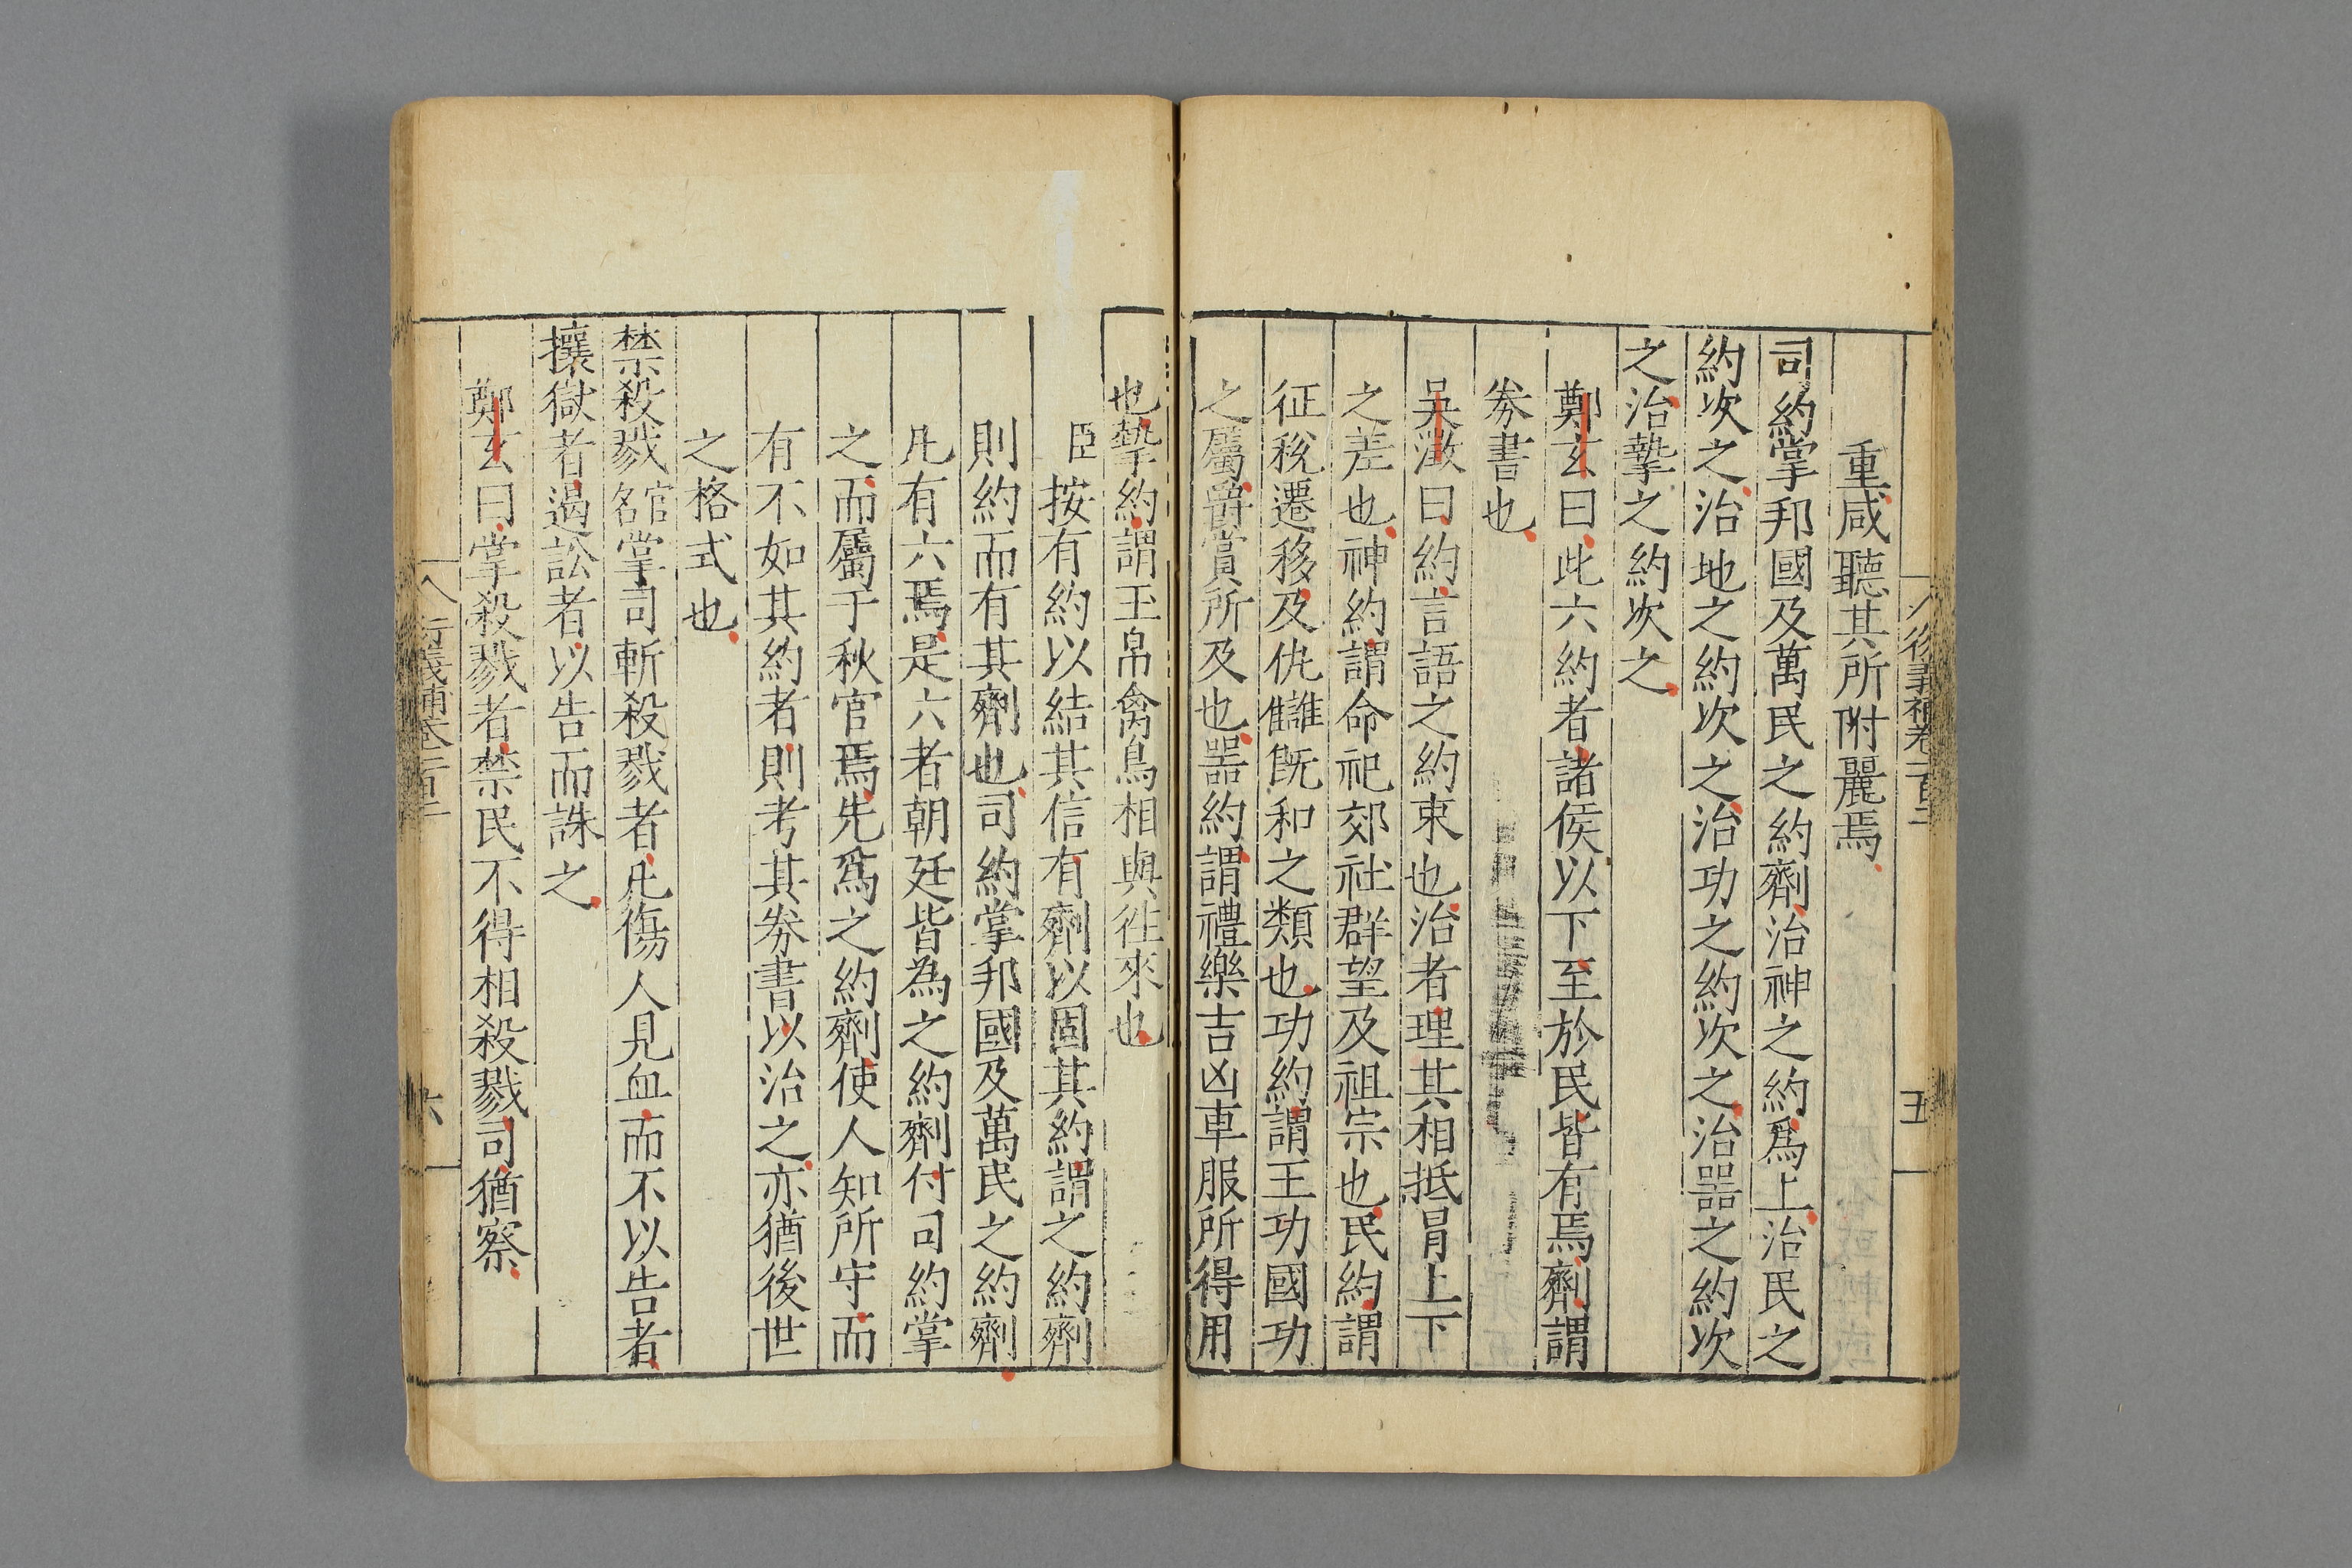 重咸聽其所附麗焉
司約掌邦國及萬民之約劑治神之約爲上治民之
約次之治地之約次之治功之約次之治器之約次
之治摯之約次之
鄭玄曰此六約者諸侯以下至於民皆有焉劑謂
券書也
吳澂曰約言語之約束也治者理其相抵冒上下
之差也神約謂命祀郊社群望及祖宗也民約謂
征稅遷移及仇讎旣和之類也功約謂王功國功
之屬爵賞所及也器約謂禮樂吉凶車服所得用
也摯約謂玉帛禽鳥相與徃來也
臣按有約以結其信有劑以固其約謂之約劑
則約而有其劑也司約掌邦國及萬民之約劑
凡有六焉是六者朝廷皆為之約劑付司約掌
之而屬于秋官焉先爲之約劑使人知所守而
有不如其約者則考其券書以治之亦猶後世
之格式也
禁殺戮官名掌司斬殺戮者凡傷人見血而不以告者
攘獄者遏訟者以告而誅之
鄭玄曰掌殺戮者禁民不得相殺戮司猶察
六